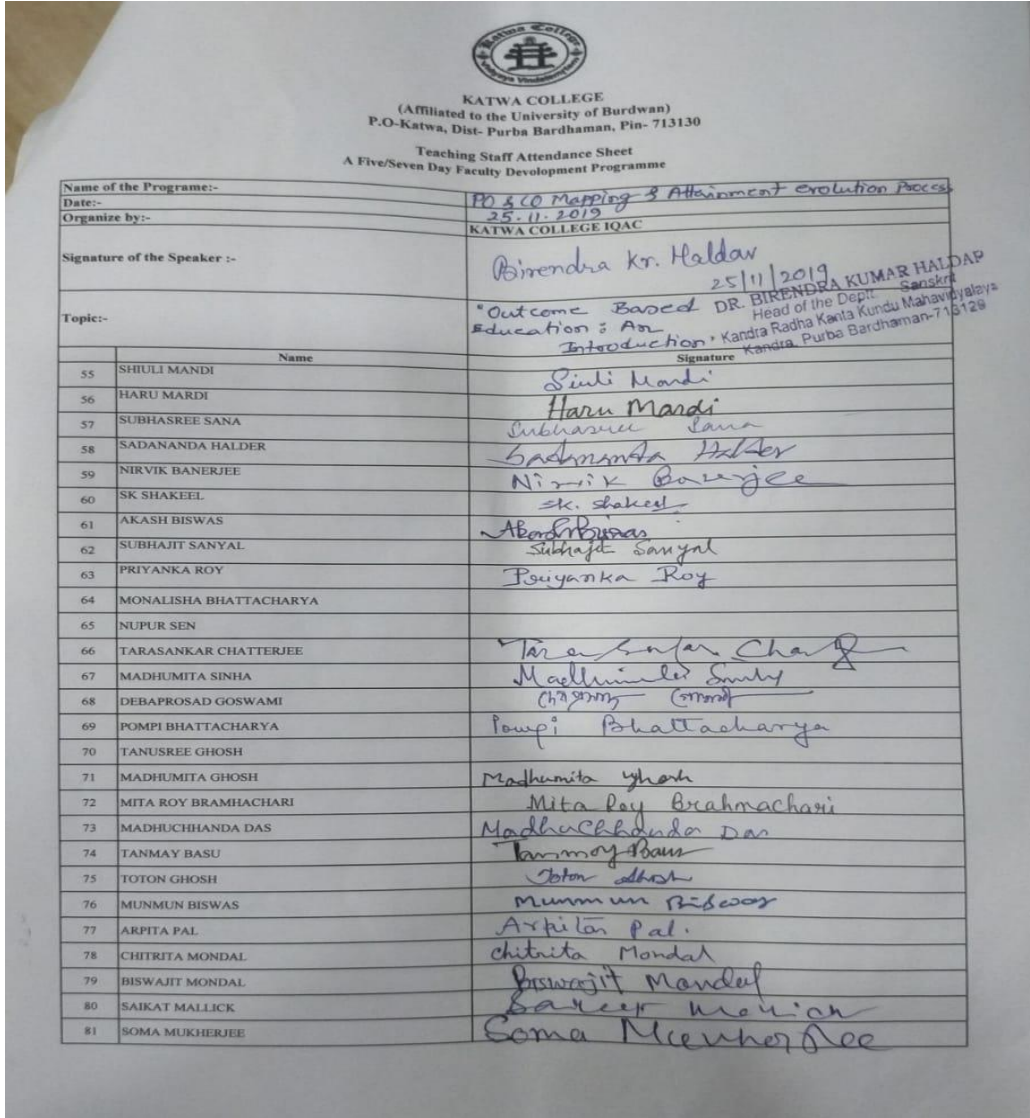 Katwa College
Vidyaya Vindatemritam
KATWA COLLEGE
(Affiliated to the University of Burdwan)
P.O-Katwa, Dist- Purba Bardhaman, Pin- 713130
Teaching Staff Attendance Sheet
A Five/Seven Day Faculty Devolopment Programme
Name of the Programe:- PO & CO Mapping & Attainment evolution Process
Date:- 25.11.2019
Organize by:- KATWA COLLEGE IQAC
Signature of the Speaker :- Birendra Kr. Haldar
25/11/2019
DR. BIRENDRA KUMAR HALDAR
Head of the Deptt. Sanskrit
Kandra Radha Kanta Kundu Mahavidyalaya
Kandra, Purba Bardhaman-713129
Topic:- "Outcome Based
Education : An
Introduction"
Name Signature
55 SHIULI MANDI Siuli Mandi
56 HARU MARDI Haru Mardi
57 SUBHASREE SANA Subhasree Sana
58 SADANANDA HALDER Sadananda Halder
59 NIRVIK BANERJEE Nirvik Banerjee
60 SK SHAKEEL Sk. Shakeel
61 AKASH BISWAS Akash Biswas
62 SUBHAJIT SANYAL Subhajit Sanyal
63 PRIYANKA ROY Priyanka Roy
64 MONALISHA BHATTACHARYA
65 NUPUR SEN
66 TARASANKAR CHATTERJEE
67 MADHUMITA SINHA
68 DEBAPROSAD GOSWAMI
69 POMPI BHATTACHARYA Pompi Bhattacharya
70 TANUSREE GHOSH
71 MADHUMITA GHOSH Madhumita Ghosh
72 MITA ROY BRAMHACHARI Mita Roy Brahmachari
73 MADHUCHHANDA DAS Madhuchhanda Das
74 TANMAY BASU Tanmoy Basu
75 TOTON GHOSH Toton Ghosh
76 MUNMUN BISWAS Munmun Biswas
77 ARPITA PAL Arpita Pal.
78 CHITRITA MONDAL Chitrita Mondal
79 BISWAJIT MONDAL Biswajit Mondal
80 SAIKAT MALLICK
81 SOMA MUKHERJEE Soma Mukherjee